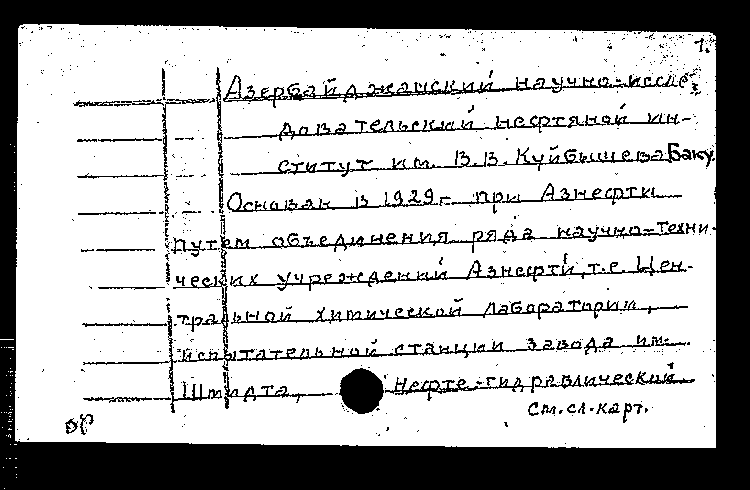 1.
Азербайджанский научно-иссле-
довательский нефтяной ин-
ститут им. В.В. Куйбышева Баку
Основан в 1929 г при Азнефти
путем объединения ряда научно-техни-
ческих учреждений Азнефти, т.е. Цен-
тральной химической лаборатории,
испытательной станции завода им.
Шмидта, Нефте-гидравлический
См. сл. карт.
ор